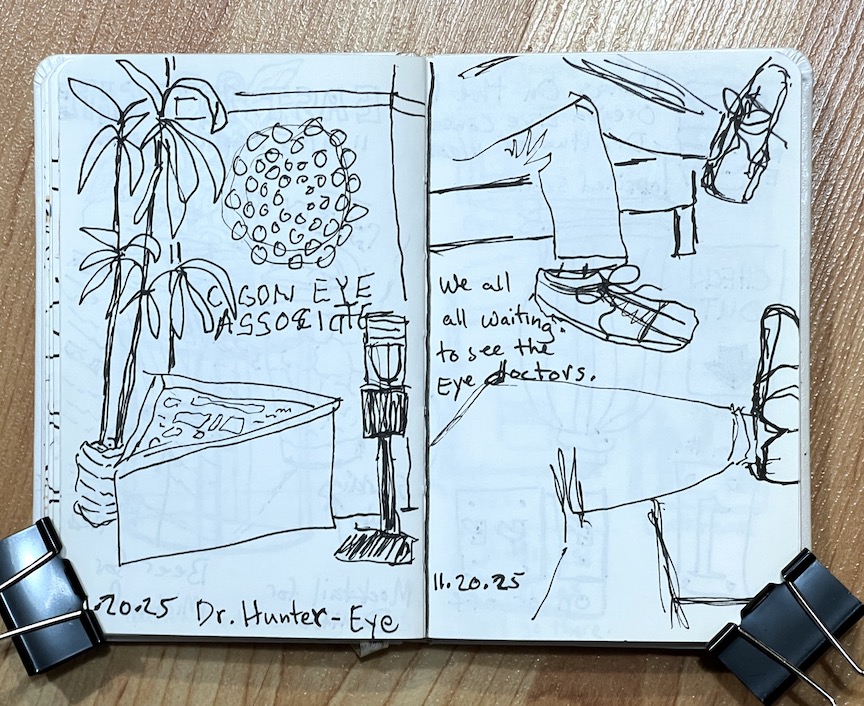 C GON EYE
ASSOCIATE
.20.25 Dr. Hunter-Eye
We all
all waiting
to see the
Eye doctors.
11.20.25